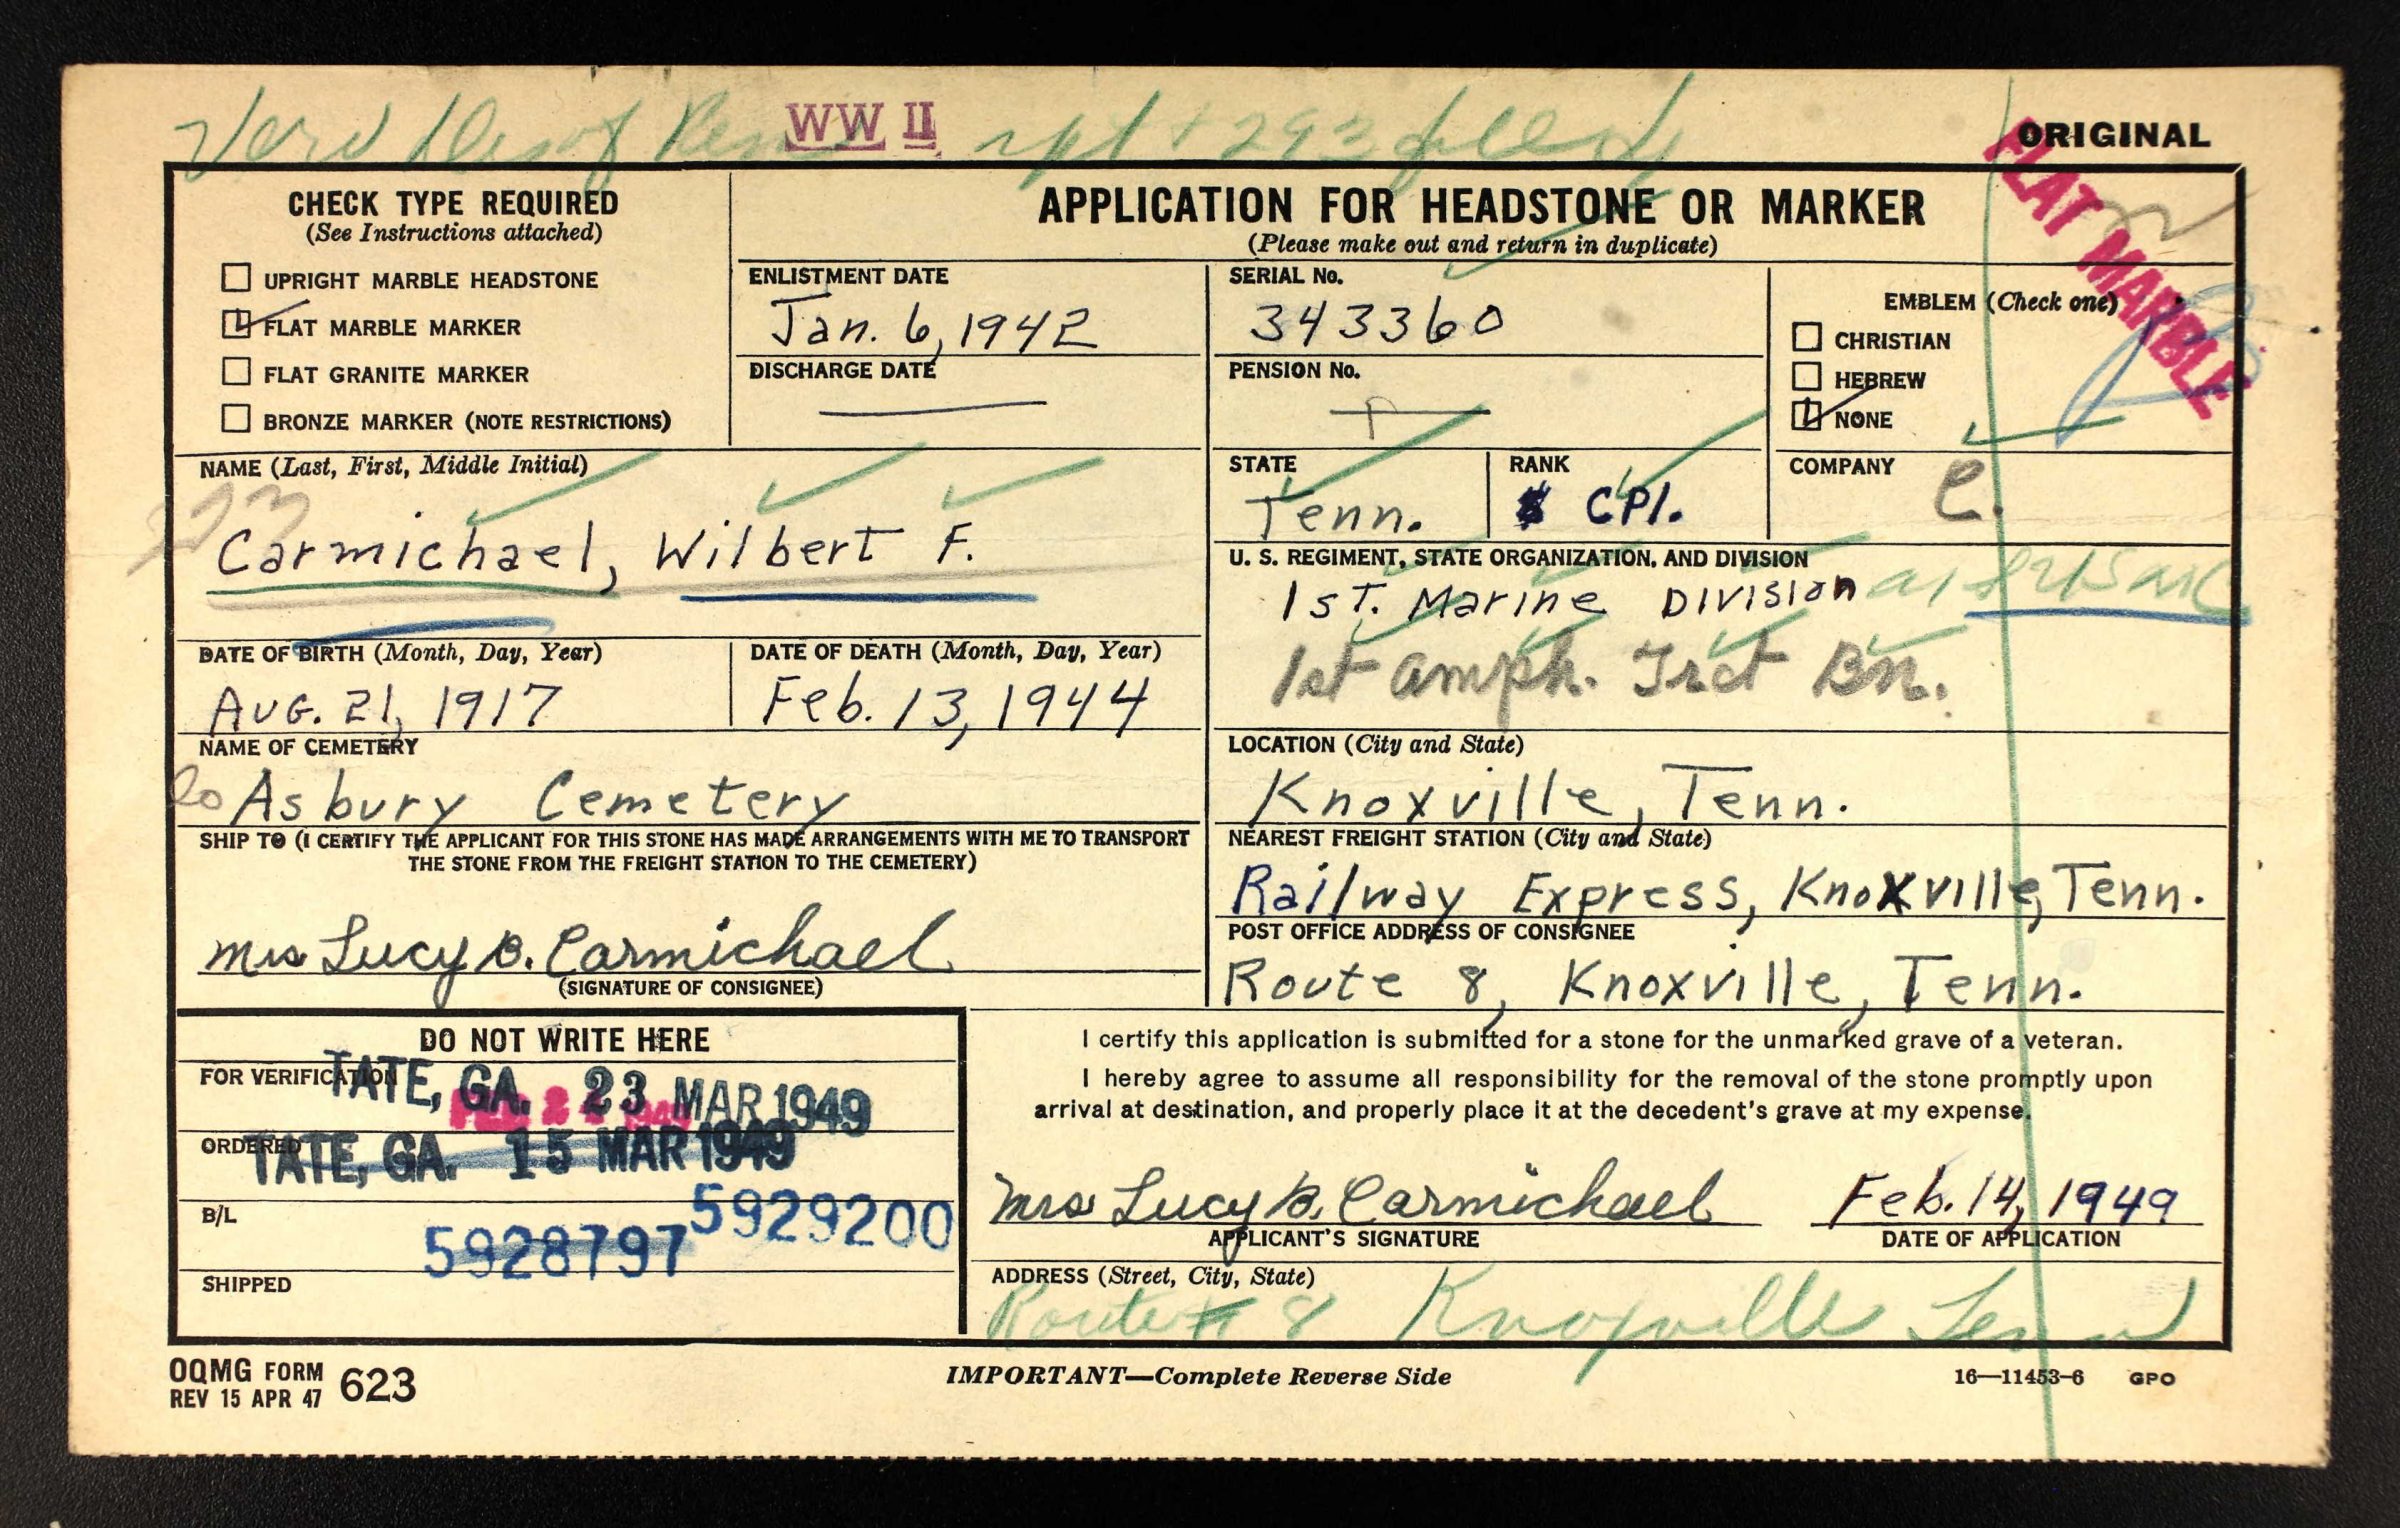 WW II
ORIGINAL
FLAT MARBLE
CHECK TYPE REQUIRED
(See Instructions attached)
UPRIGHT MARBLE HEADSTONE
FLAT MARBLE MARKER
FLAT GRANITE MARKER
BRONZE MARKER (NOTE RESTRICTIONS)
APPLICATION FOR HEADSTONE OR MARKER
(Please make out and return in duplicate)
ENLISTMENT DATE
Jan. 6, 1942
DISCHARGE DATE
SERIAL No.
343360
PENSION No.
EMBLEM (Check one)
CHRISTIAN
HEBREW
NONE
NAME (Last, First, Middle Initial)
Carmichael, Wilbert F.
STATE
Tenn.
RANK
CPl.
COMPANY
C.
U. S. REGIMENT, STATE ORGANIZATION, AND DIVISION
1sT. Marine Division
1st Amph. Trct Bn.
DATE OF BIRTH (Month, Day, Year)
Aug. 21, 1917
DATE OF DEATH (Month, Day, Year)
Feb. 13, 1944
NAME OF CEMETERY
Asbury Cemetery
LOCATION (City and State)
Knoxville, Tenn.
SHIP TO (I CERTIFY THE APPLICANT FOR THIS STONE HAS MADE ARRANGEMENTS WITH ME TO TRANSPORT
THE STONE FROM THE FREIGHT STATION TO THE CEMETERY)
Mrs Lucy B. Carmichael
(SIGNATURE OF CONSIGNEE)
NEAREST FREIGHT STATION (City and State)
Railway Express, Knoxville, Tenn.
POST OFFICE ADDRESS OF CONSIGNEE
Route 8, Knoxville, Tenn.
DO NOT WRITE HERE
FOR VERIFICATION
TATE, GA. 23 MAR 1949
ORDERED
TATE, GA. 15 MAR 1949
B/L
5929200
5928797
SHIPPED
I certify this application is submitted for a stone for the unmarked grave of a veteran.
I hereby agree to assume all responsibility for the removal of the stone promptly upon
arrival at destination, and properly place it at the decedent's grave at my expense.
Mrs Lucy B. Carmichael
Feb. 14, 1949
APPLICANT'S SIGNATURE
DATE OF APPLICATION
ADDRESS (Street, City, State)
Route # 8 Knoxville Tenn
OQMG FORM
REV 15 APR 47
623
IMPORTANT—Complete Reverse Side
16—11453-6 GPO